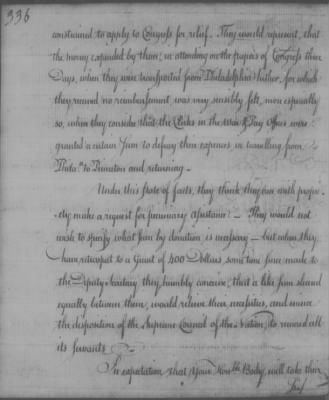 336
constrained to apply to Congress for relief. They would represent, that
the money expended by them, in attending on the papers of Congress these
Days, when they were transported from Philadelphia hither, for which
they received no reimbursement, was very sensibly felt, more especially
so, when they consider that the Clerks in the War & Pay Offices were
granted a certain sum to defray their expences in travelling from
Phila. to Princeton and returning.
Under this state of facts, they think they can with propri-
ety make a request for pecuniary assistance. – They would not
wish to specify what sum by donation is necessary – but when they
have retrospect to a Grant of 400 Dollars some time since made to
the Deputy Secretary they humbly conceive, that a like sum shared
equally between them, would relieve their necessities, and evince
the disposition of the Supreme Council of the Nation, to reward all
its servants.
In expectation that your Honble Body, will take their